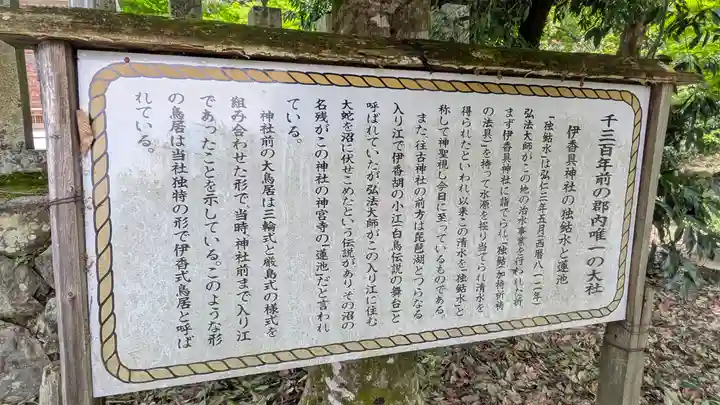 千三百年前の郡内唯一の大社
伊香具神社の独鈷水と蓮池
「独鈷水」は弘仁三年五月(西暦八一二年)
弘法大師がこの地の治水事業を行われた折
まず伊香具神社に詣でられ、独鈷(加持祈祷
の法具)を持って水源を掘り当てられ清水を
得られたといわれ、以来この清水を「独鈷水」と
称して神聖視し今日に至っているものである。
また、往古神社の前方は琵琶湖とつらなる
入り江で伊香胡の小江(白鳥伝説の舞台)と
呼ばれていたが弘法大師がこの入り江に住む
大蛇を沼に伏せこめたという伝説があり、その沼の
名残がこの神社の神宮寺の「蓮池」だと言われ
ている。
神社前の大鳥居は三輪式と厳島式の様式を
組み合わせた形で、当時、神社前まで入り江
であったことを示している。このような形
の鳥居は当社独特の形で伊香式鳥居と呼ば
れている。